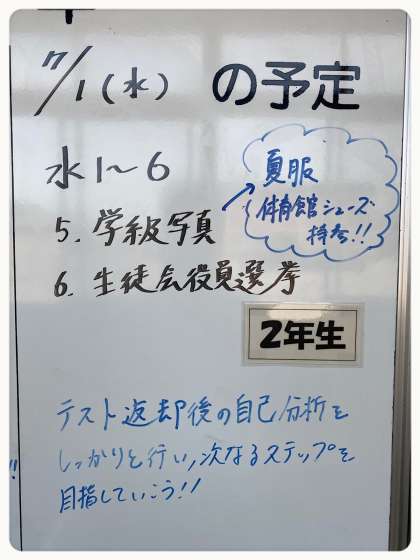 7/1(水) の予定
水1~6
夏服
体育館シューズ
持参!!
5. 学級写真
6. 生徒会役員選挙
2年生
テスト返却後の自己分析を
しっかりと行い,次なるステップを
目指していこう!!
!!